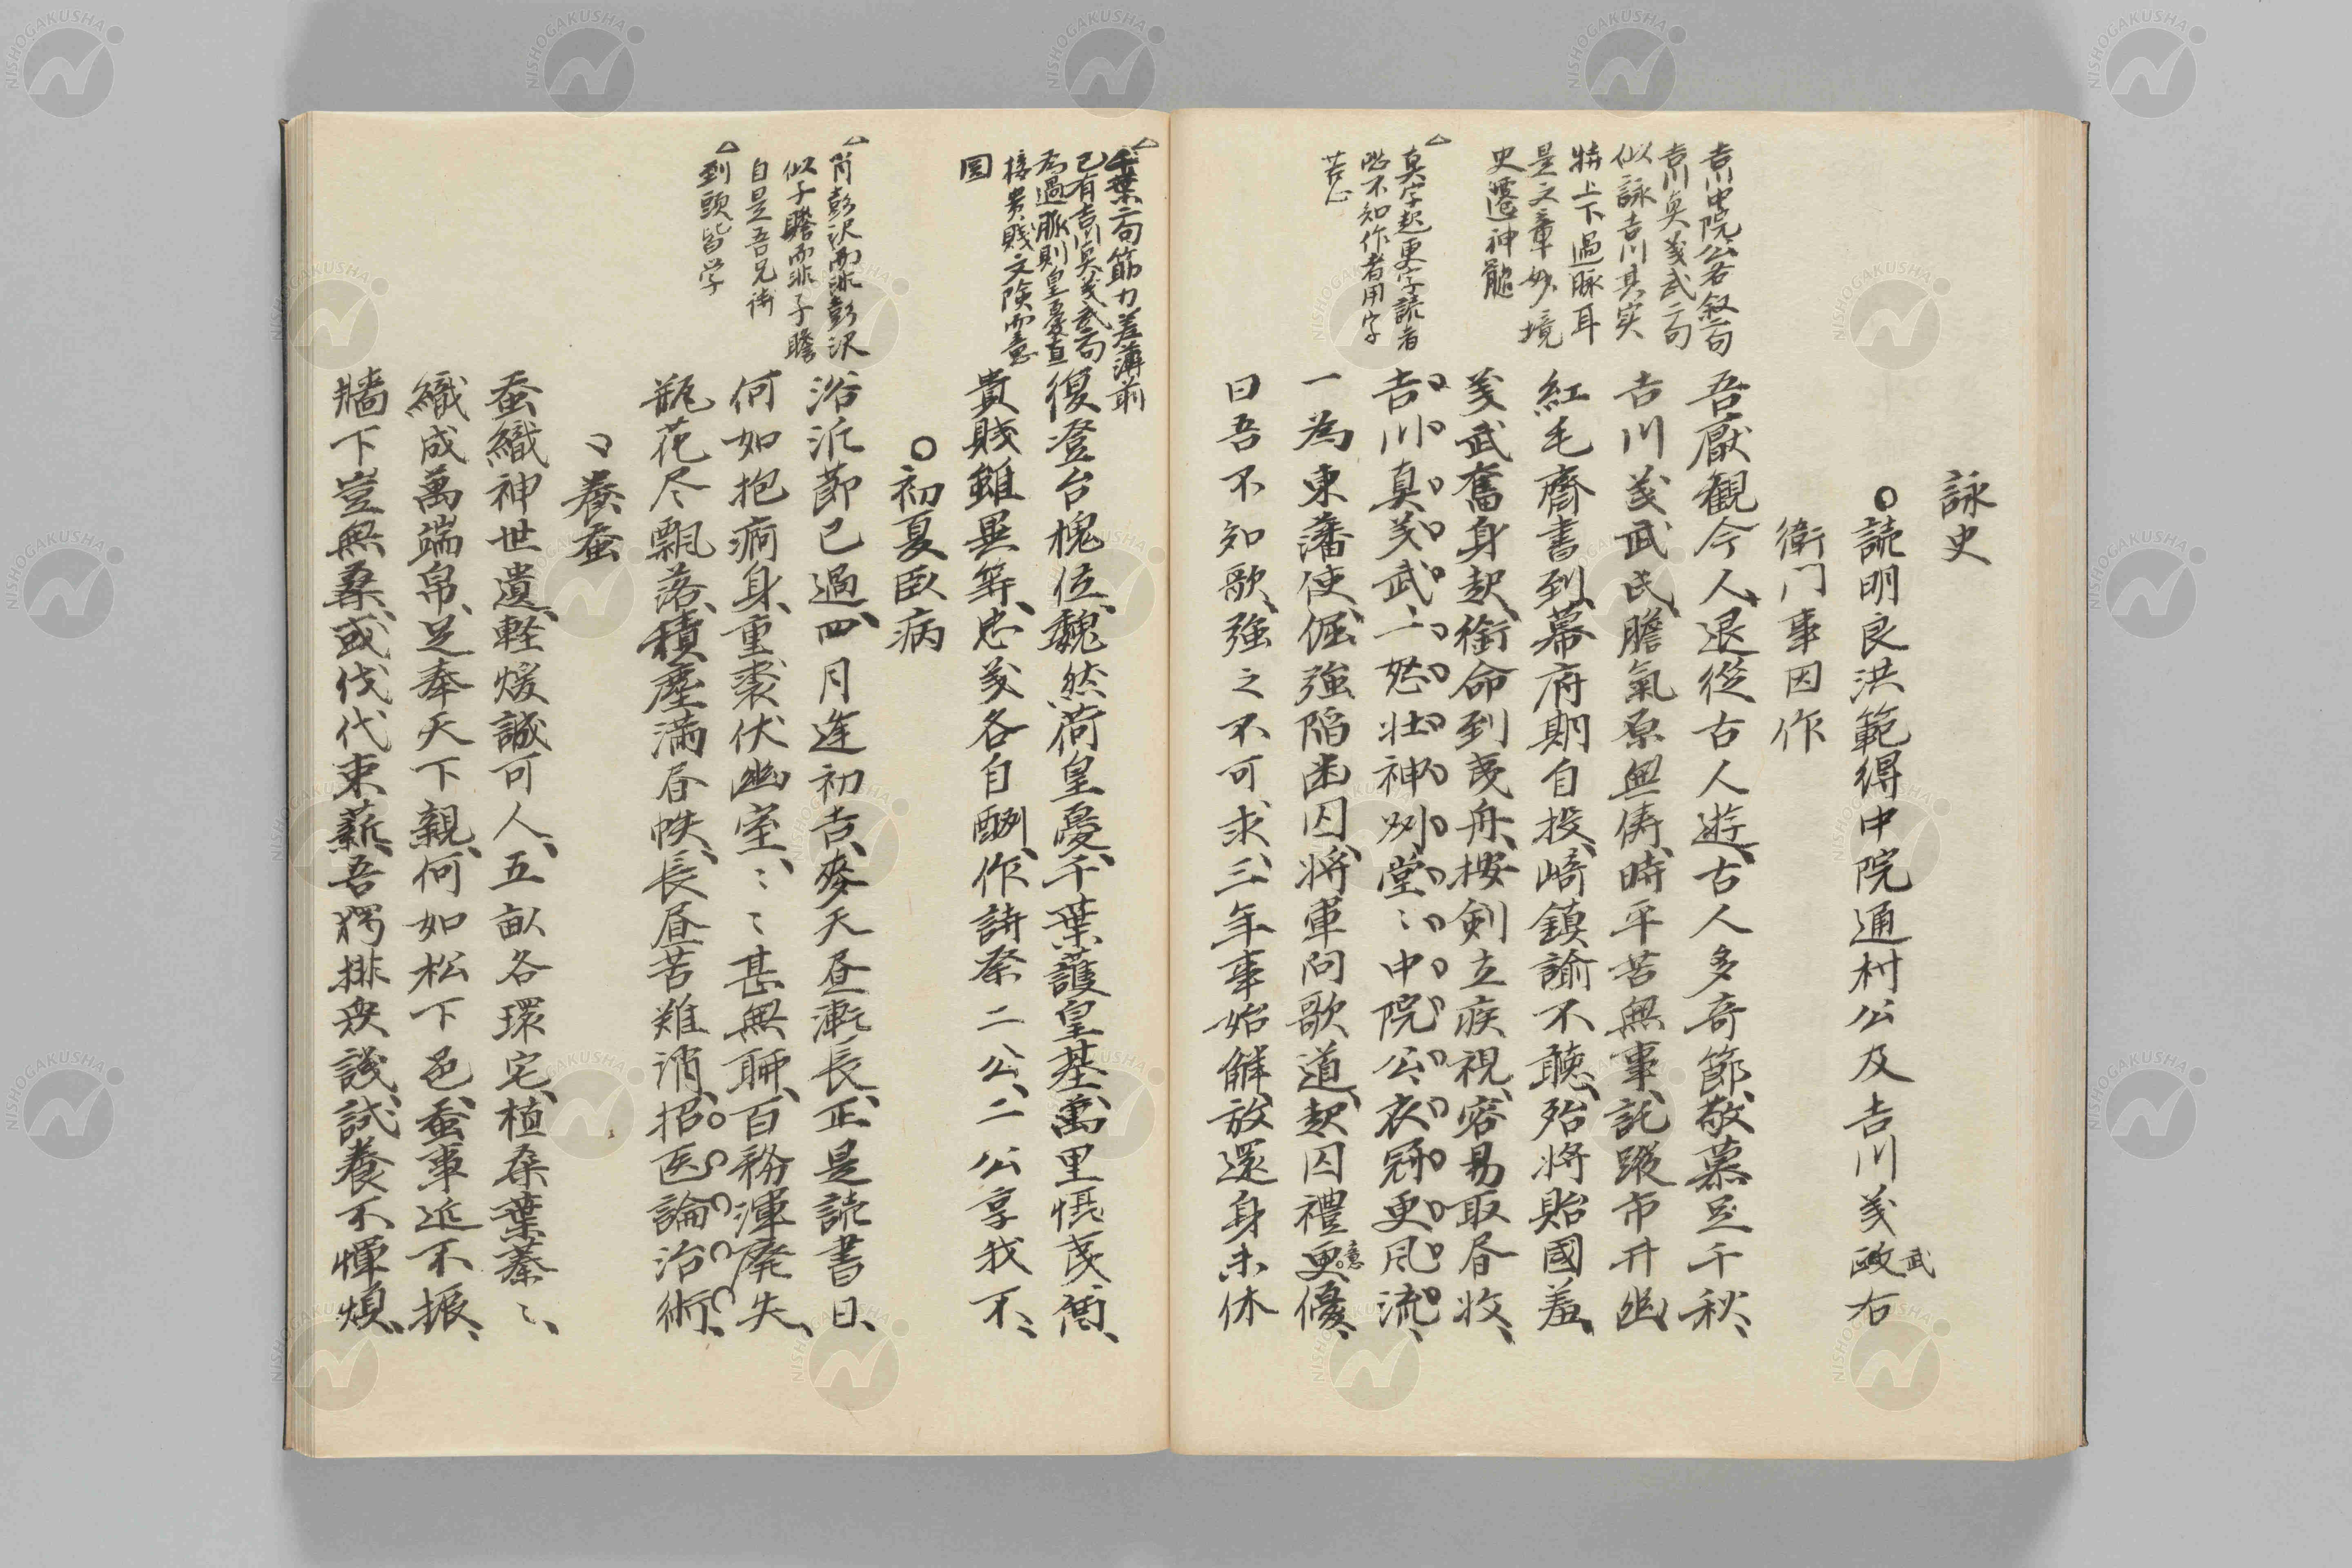 詠史
○読明良洪範得中院通村公及吉川義政右
武
衛門事因作
吾厭観今人、退從古人遊、古人多奇節、敬慕足千秋、
吉川義武氏、膽氣原無儔、時平苦無事、託蹤市井幽、
紅毛齎書到、幕府期自投、崎鎮諭不聴、殆将貽國羞、
義武奮身起、銜命到蛮舟、按剣立疾視、容易取届收、
吉川真義武、一怒壮神州、堂〻中院公、衣冠更風流、
一為東藩使、倔強陷幽囚、将軍问歌道、起囚禮更優、
意
曰吾不知歌、強之不可求、三年事始解、放還身未休
吉川中院公右叙二句
吉川真義武二句
似詠吉川其实
特上下過脉耳
是文章妙境
史遷神髄
△真字起更字読者
恐不知作者用字
苦心
復登台槐位、巍然荷皇憂、千葉護皇基、萬里慴蛮酋、
貴賎雖異等、忠義各自酬、作詩祭二公、二公享我不、
△千葉二句筋力差薄前
已有吉川真義武二句
為過脉則皇憂直
接貴賎文険而意
固
○初夏臥病
浴沂節已過、四月連初吉、麥天昼漸長、正是読書日、
何如抱痾身、重裘伏幽室、〻〻甚無聊、百務渾廃失、
瓶花尽飄落、積塵満昏帙、長昼苦難消、招医論治術、
△肖彭沢而非彭沢
似子瞻而非子瞻
自是吾兄詩
△到頭皆学
養蚕
蚕織神世遺、軽煖誠可人、五畝各環宅、植桑葉蓁〻、
織成萬端帛、足奉天下親、何如松下邑、蚕事近不振、
牆下豈無桑、或伐代束薪、吾獨排衆議、試養不憚煩、